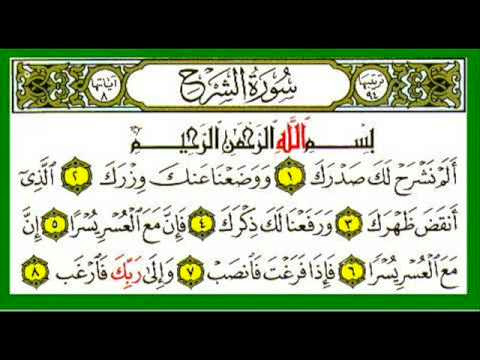 ترتيبها ٩٤ سُورَةُ الشَّرْحِ آياتها ٨
بِسْمِ اللَّهِ الرَّحْمَٰنِ الرَّحِيمِ
أَلَمْ نَشْرَحْ لَكَ صَدْرَكَ ١ وَوَضَعْنَا عَنكَ وِزْرَكَ ٢ ٱلَّذِىٓ
أَنقَضَ ظَهْرَكَ ٣ وَرَفَعْنَا لَكَ ذِكْرَكَ ٤ فَإِنَّ مَعَ ٱلْعُسْرِ يُسْرًا ٥ إِنَّ
مَعَ ٱلْعُسْرِ يُسْرًا ٦ فَإِذَا فَرَغْتَ فَٱنصَبْ ٧ وَإِلَىٰ رَبِّكَ فَٱرْغَب ٨